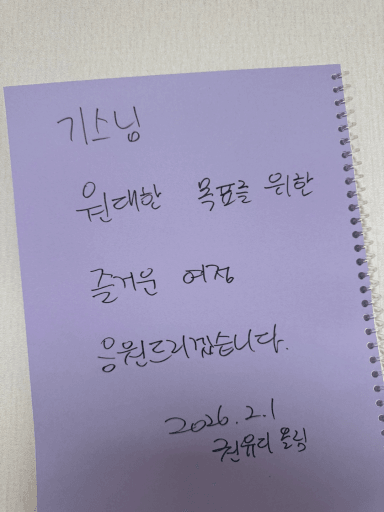 기스님
원대한 목표를 위한
즐거운 여정
응원드리겠습니다.
2026.2.1
권유디 올림